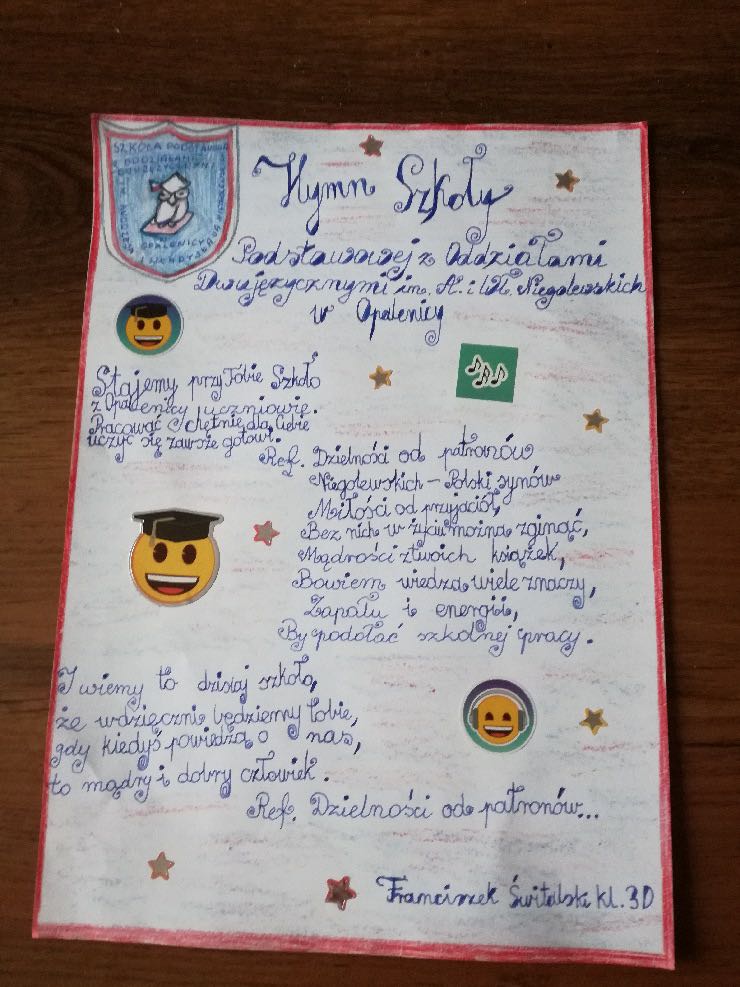 SZKOŁA PODSTAWOWA
W OPALENICY
Hymn Szkoły
Podstawowej z Oddziałami
Dwujęzycznymi im. A. i W. Niegolewskich
w Opalenicy
Stajemy przy Tobie Szkoło
z Opalenicy uczniowie.
Pracować chętnie dla Ciebie
uczyć się zawsze gotowi.
Ref. Dzielności od patronów
Niegolewskich - Polski synów
Miłości od przyjaciół,
Bez nich w życiu można zginąć,
Mądrości z twoich książek,
Bowiem wiedza wiele znaczy,
Zapału i energii,
By podołać szkolnej pracy.
I wiemy to dzisiaj szkoło,
że wdzięczni będziemy tobie,
gdy kiedyś powiedzą o nas,
to mądry i dobry człowiek.
Ref. Dzielności od patronów...
Franciszek Świtalski kl. 3D